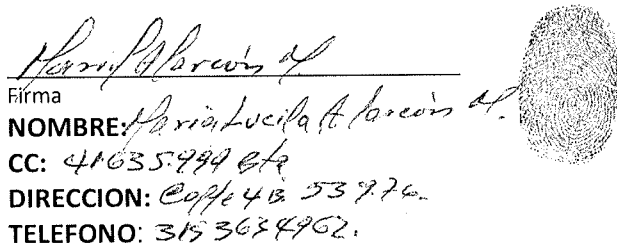 Maria Alarcón M.
Firma
NOMBRE: Maria Lucila Alarcón M.
CC: 41.635.999 Bta
DIRECCION: Calle 4B 53 97.76.
TELEFONO: 315 3634962.